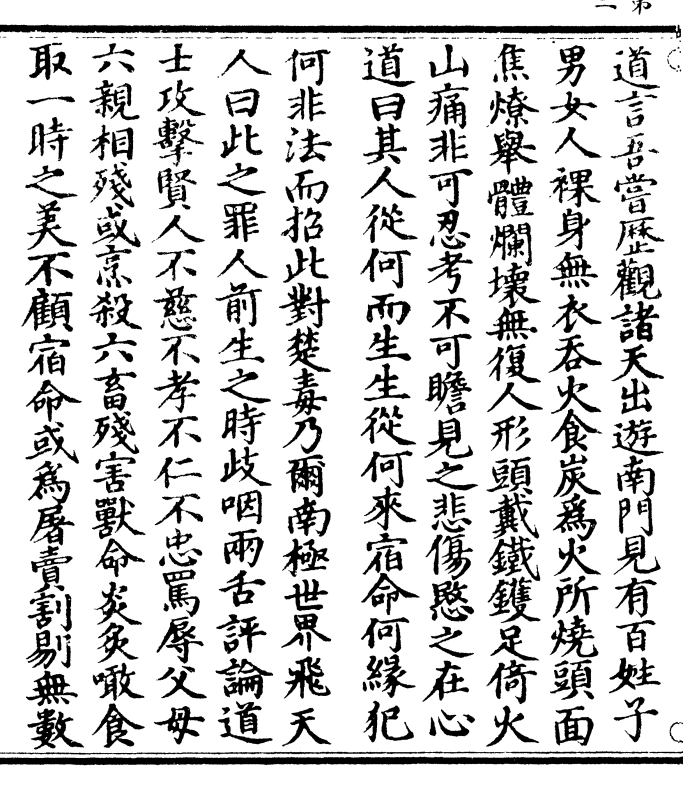 道言吾嘗歷觀諸天出遊南門見有百姓子
男女人裸身無衣吞火食炭爲火所燒頭面
焦燎舉體爛壞無復人形頭戴鐵鑊足倚火
山痛非可忍考不可瞻見之悲傷愍之在心
道曰其人從何而生生從何來宿命何緣犯
何非法而招此對楚毒乃爾南極世界飛天
人曰此之罪人前生之時歧咽兩舌評論道
士攻擊賢人不慈不孝不仁不忠罵辱父母
六親相殘或烹殺六畜殘害獸命炎炙噉食
取一時之美不顧宿命或爲屠賣割剔無數